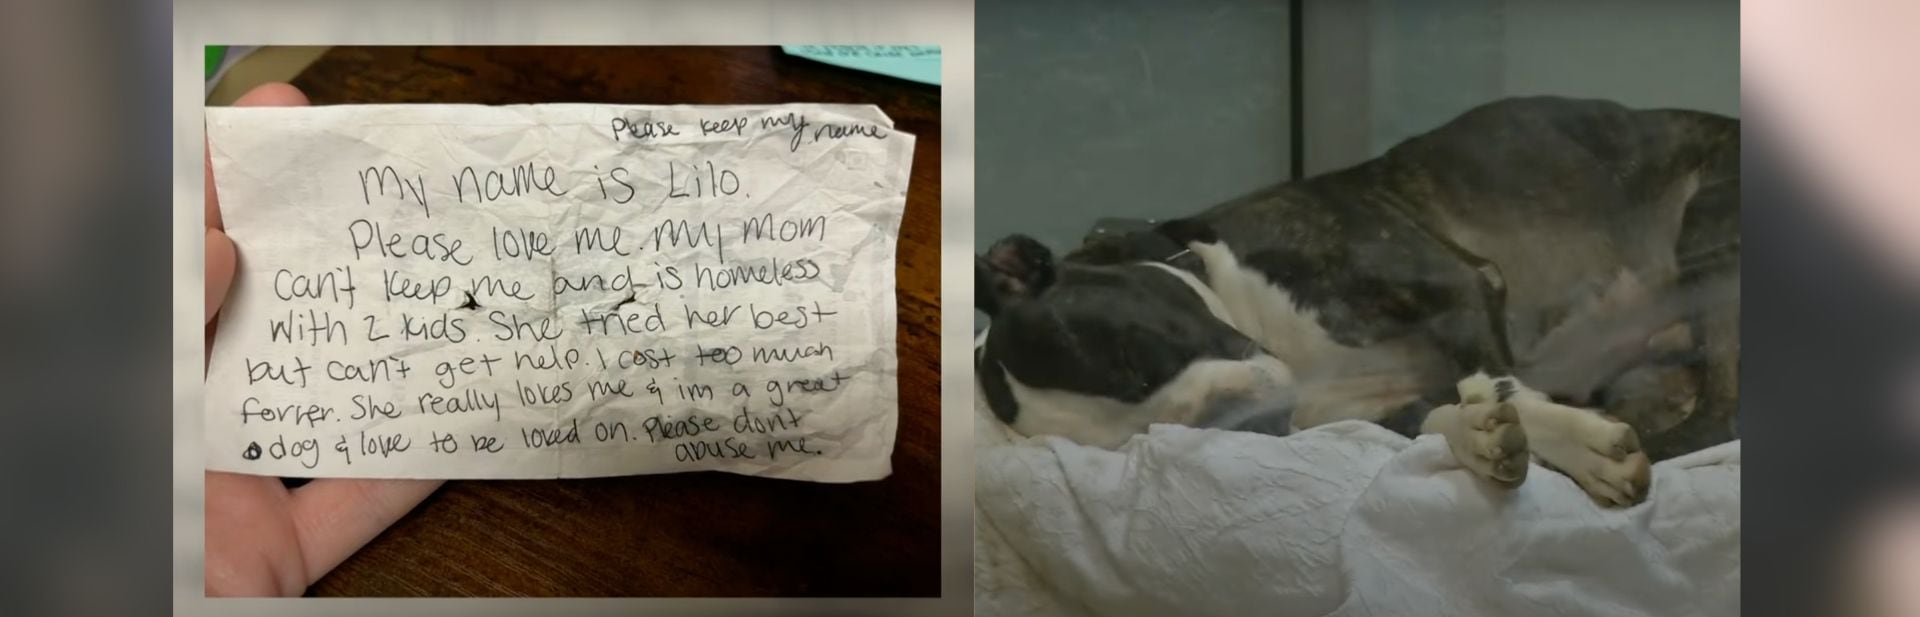 Please keep my name
My name is Lilo.
Please love me. My Mom
can't keep me and is homeless
with 2 kids. She tried her best
but can't get help. I cost too much
forher. She really loves me & im a great
dog & love to be loved on. Please don't
abuse me.